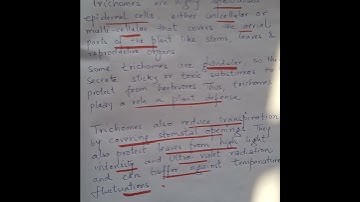 Trichomes are highly specialised
epidermal cells, either unicellular or
multi-cellular that covers the aerial
parts of the plant like stems, leaves &
reproductive organs
Some trichomes are glandular, so they
secrete sticky or toxic substances to
protect from herbivores Thus, trichomes
play a role in plant defense
Trichomes also reduce transpiration
by covering stomatal openings They
also protect leaves from high light
intensity and ultra violet radiation
and can buffer against temperature
fluctuations.